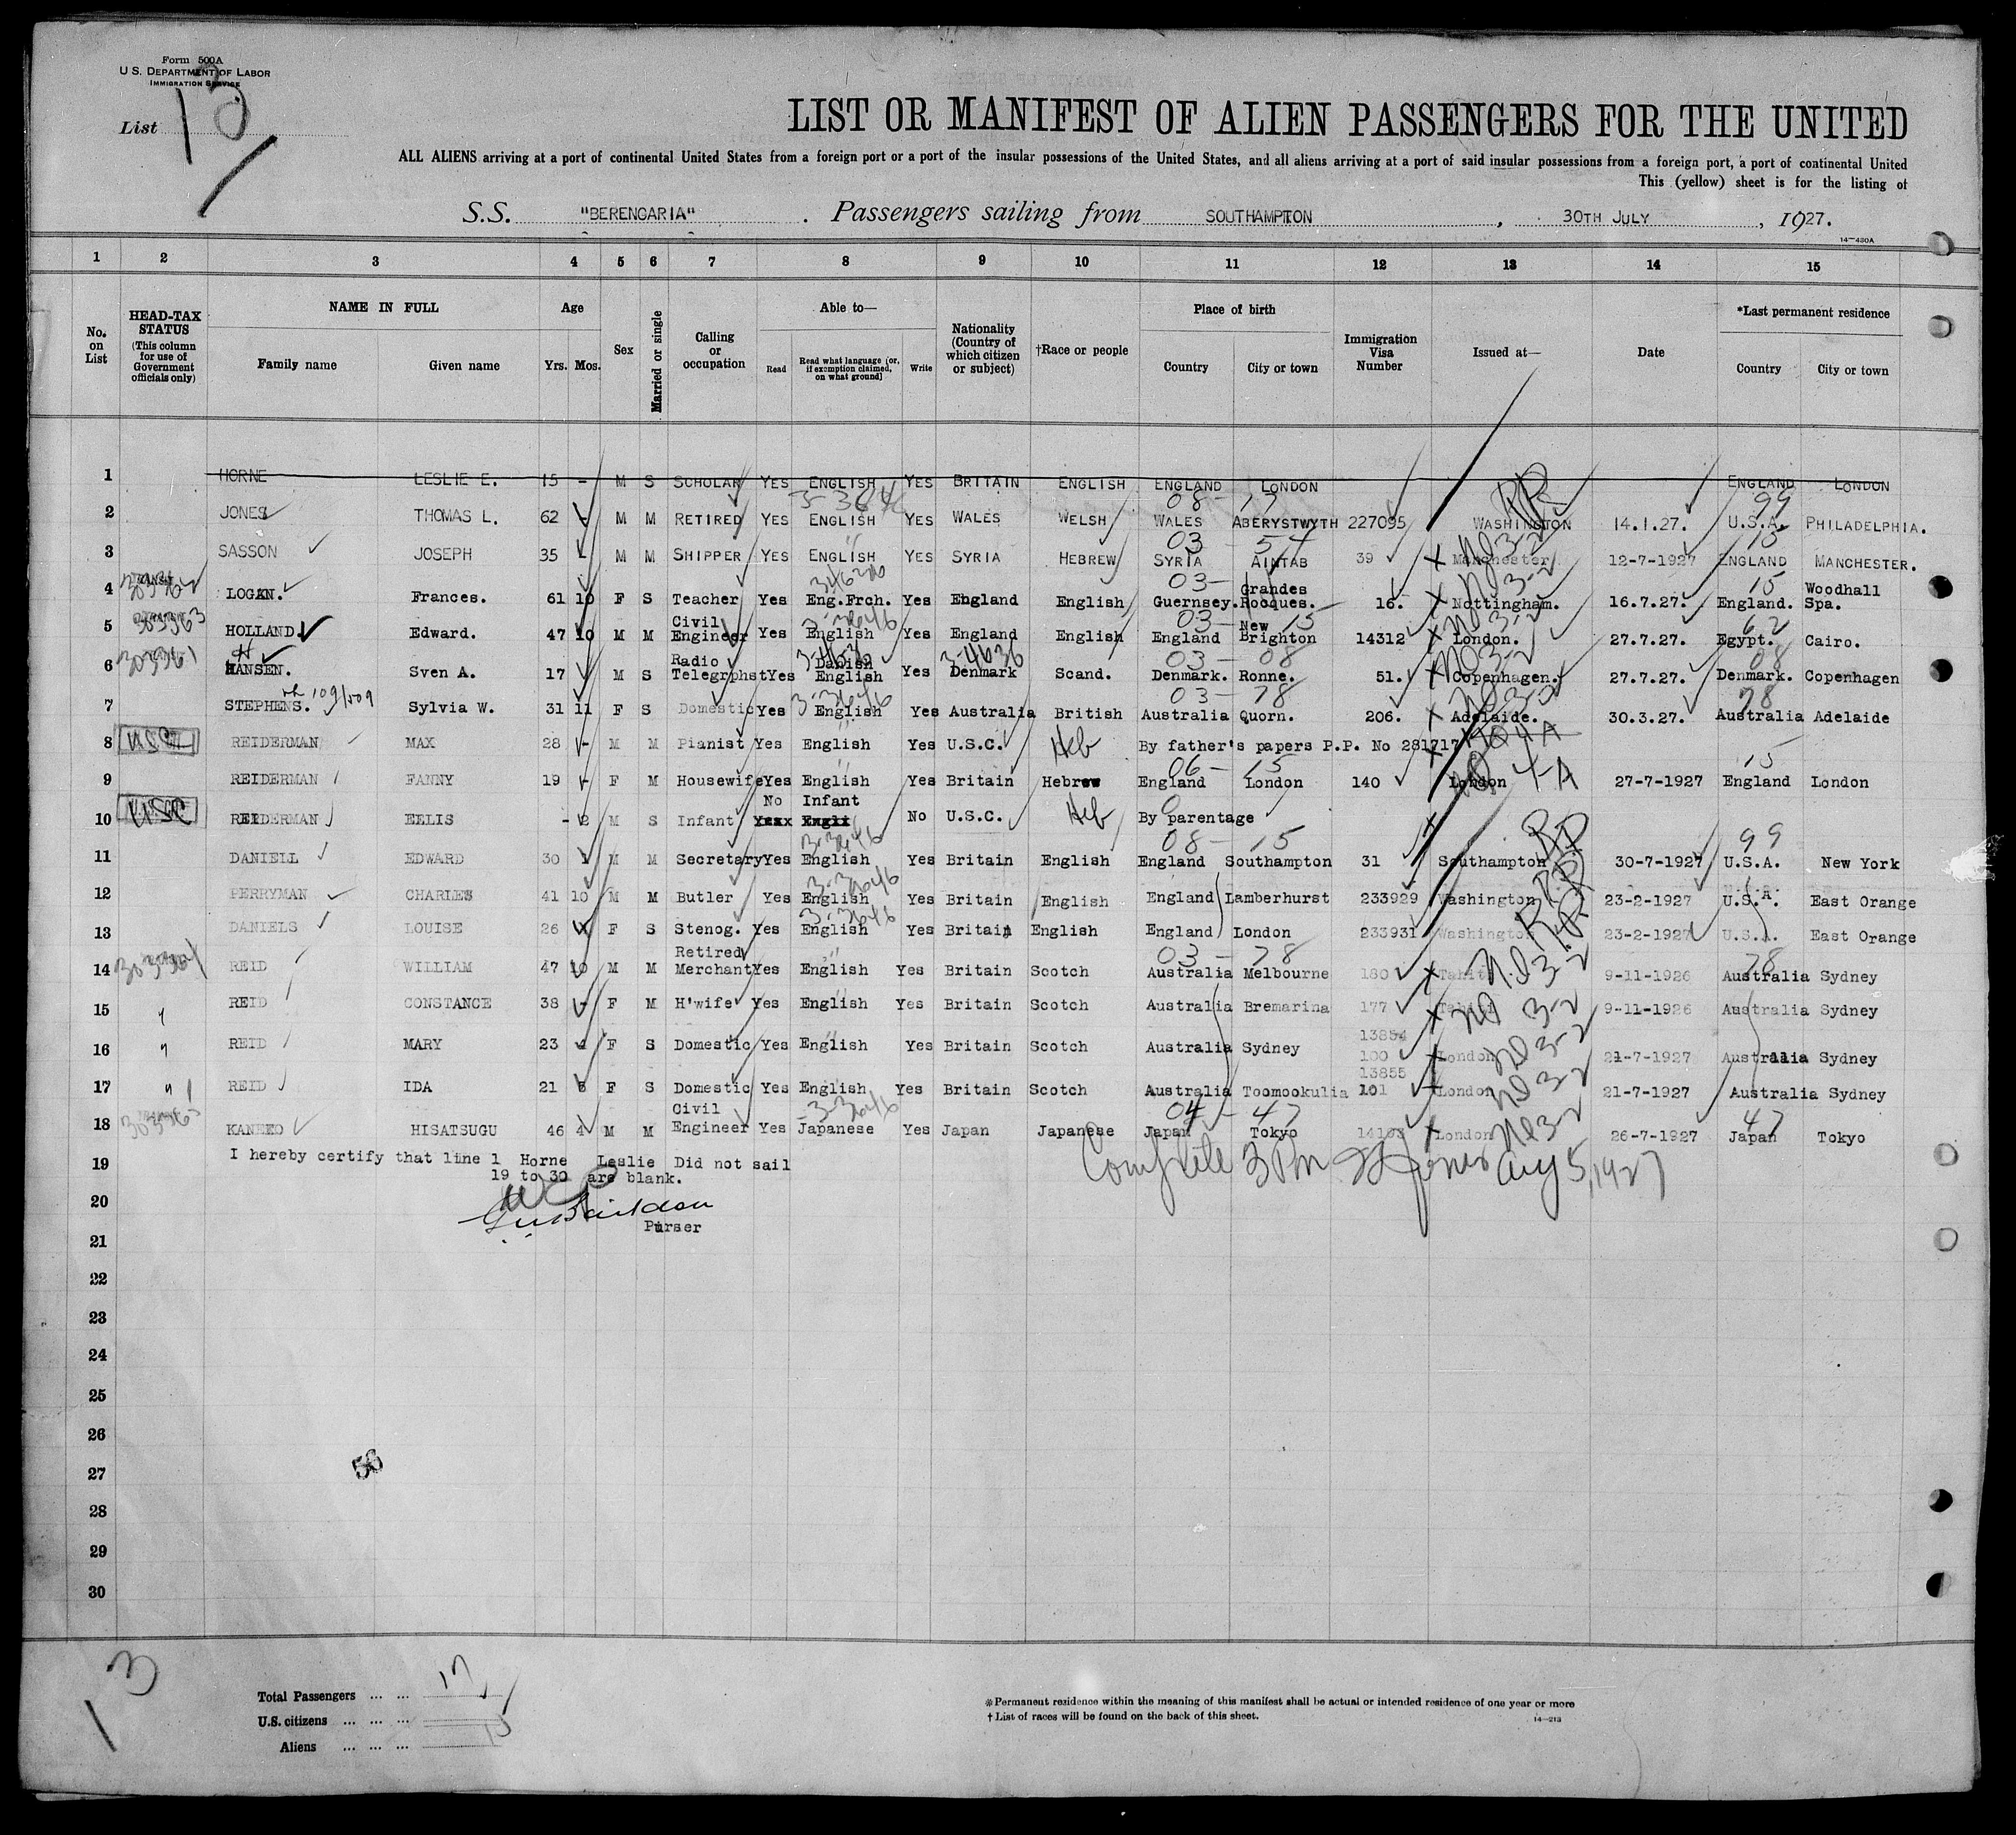 Form 500A
U.S. DEPARTMENT OF LABOR
IMMIGRATION SERVICE
List 13
LIST OR MANIFEST OF ALIEN PASSENGERS FOR THE UNITED
ALL ALIENS arriving at a port of continental United States from a foreign port or a port of the insular possessions of the United States, and all aliens arriving at a port of said insular possessions from a foreign port, a port of continental United
This (yellow) sheet is for the listing of
S.S. "BERENGARIA" . Passengers sailing from SOUTHAMPTON , 30TH JULY , 1927.
14—430A
1 2 3 4 5 6 7 8 9 10 11 12 13 14 15
No. on List
HEAD-TAX STATUS (This column for use of Government officials only)
NAME IN FULL
Family name Given name
Age
Yrs. Mos.
Sex
Married or single
Calling or occupation
Able to—
Read Read what language [or, if exemption claimed, on what ground] Write
Nationality (Country of which citizen or subject)
†Race or people
Place of birth
Country City or town
Immigration Visa Number
Issued at—
Date
*Last permanent residence
Country City or town
1 HORNE LESLIE E. 15 - M S SCHOLAR YES ENGLISH YES BRITAIN ENGLISH ENGLAND LONDON ENGLAND LONDON
08 - 17 99
2 JONES THOMAS L. 62 - M M RETIRED YES ENGLISH YES WALES WELSH WALES ABERYSTWYTH 227095 WASHINGTON 14.1.27. U.S.A. PHILADELPHIA.
03 - 54 15
3 SASSON JOSEPH 35 - M M SHIPPER YES ENGLISH YES SYRIA HEBREW SYRIA AINTAB 39 Manchester 12-7-1927 ENGLAND MANCHESTER.
03- 15
4 LOGAN. Frances. 61 10 F S Teacher Yes Eng.Frch. Yes England English Guernsey. Grandes Rocques. 16. Nottingham. 16.7.27. England. Woodhall Spa.
03- 15 62
5 HOLLAND. Edward. 47 10 M M Civil Engineer Yes English Yes England English England New Brighton 14312 London. 27.7.27. Egypt. Cairo.
03 - 08 08
6 HANSEN. Sven A. 17 M S Radio Telegrphst Yes Danish English Yes Denmark Scand. Denmark. Ronne. 51. Copenhagen. 27.7.27. Denmark. Copenhagen
03 - 78 78
7 STEPHENS. Sylvia W. 31 11 F S Domestic Yes English Yes Australia British Australia Quorn. 206. Adelaide. 30.3.27. Australia Adelaide
8 USC REIDERMAN MAX 28 - M M Pianist Yes English Yes U.S.C. Heb By father's papers P.P. No 281717
06 - 15 15
9 REIDERMAN FANNY 19 - F M Housewife Yes English Yes Britain Hebrew England London 140 London 27-7-1927 England London
No Infant
10 USC REIDERMAN ELLIS - 2 M S Infant No U.S.C. Heb By parentage
08 - 15 99
11 DANIELL EDWARD 30 1 M M Secretary Yes English Yes Britain English England Southampton 31 Southampton 30-7-1927 U.S.A. New York
12 PERRYMAN CHARLES 41 10 M M Butler Yes English Yes Britain English England Lamberhurst 233929 Washington 23-2-1927 U.S.A. East Orange
13 DANIELS LOUISE 26 F S Stenog. Yes English Yes Britain English England London 233931 Washington 23-2-1927 U.S.A. East Orange
03 - 78 78
14 REID WILLIAM 47 10 M M Retired Merchant Yes English Yes Britain Scotch Australia Melbourne 180 Tahiti 9-11-1926 Australia Sydney
15 REID CONSTANCE 38 - F M H'wife Yes English Yes Britain Scotch Australia Bremarina 177 Tahiti 9-11-1926 Australia Sydney
16 REID MARY 23 F S Domestic Yes English Yes Britain Scotch Australia Sydney 13854 100 London 21-7-1927 Australia Sydney
17 REID IDA 21 F S Domestic Yes English Yes Britain Scotch Australia Toomookulia 13855 101 London 21-7-1927 Australia Sydney
04 - 47 47
18 KANEKO HISATSUGU 46 4 M M Civil Engineer Yes Japanese Yes Japan Japanese Japan Tokyo London 26-7-1927 Japan Tokyo
19 I hereby certify that line 1 Horne Leslie Did not sail
19 to 30 are blank.
Complete 3 Pm Jones Aug 5, 1927
20
Purser
21
22
23
24
25
26
27
56
28
29
30
13
Total Passengers ... ... 17
U.S. citizens ... ... ...
Aliens ... ... ... 15
*Permanent residence within the meaning of this manifest shall be actual or intended residence of one year or more
†List of races will be found on the back of this sheet.
14—213